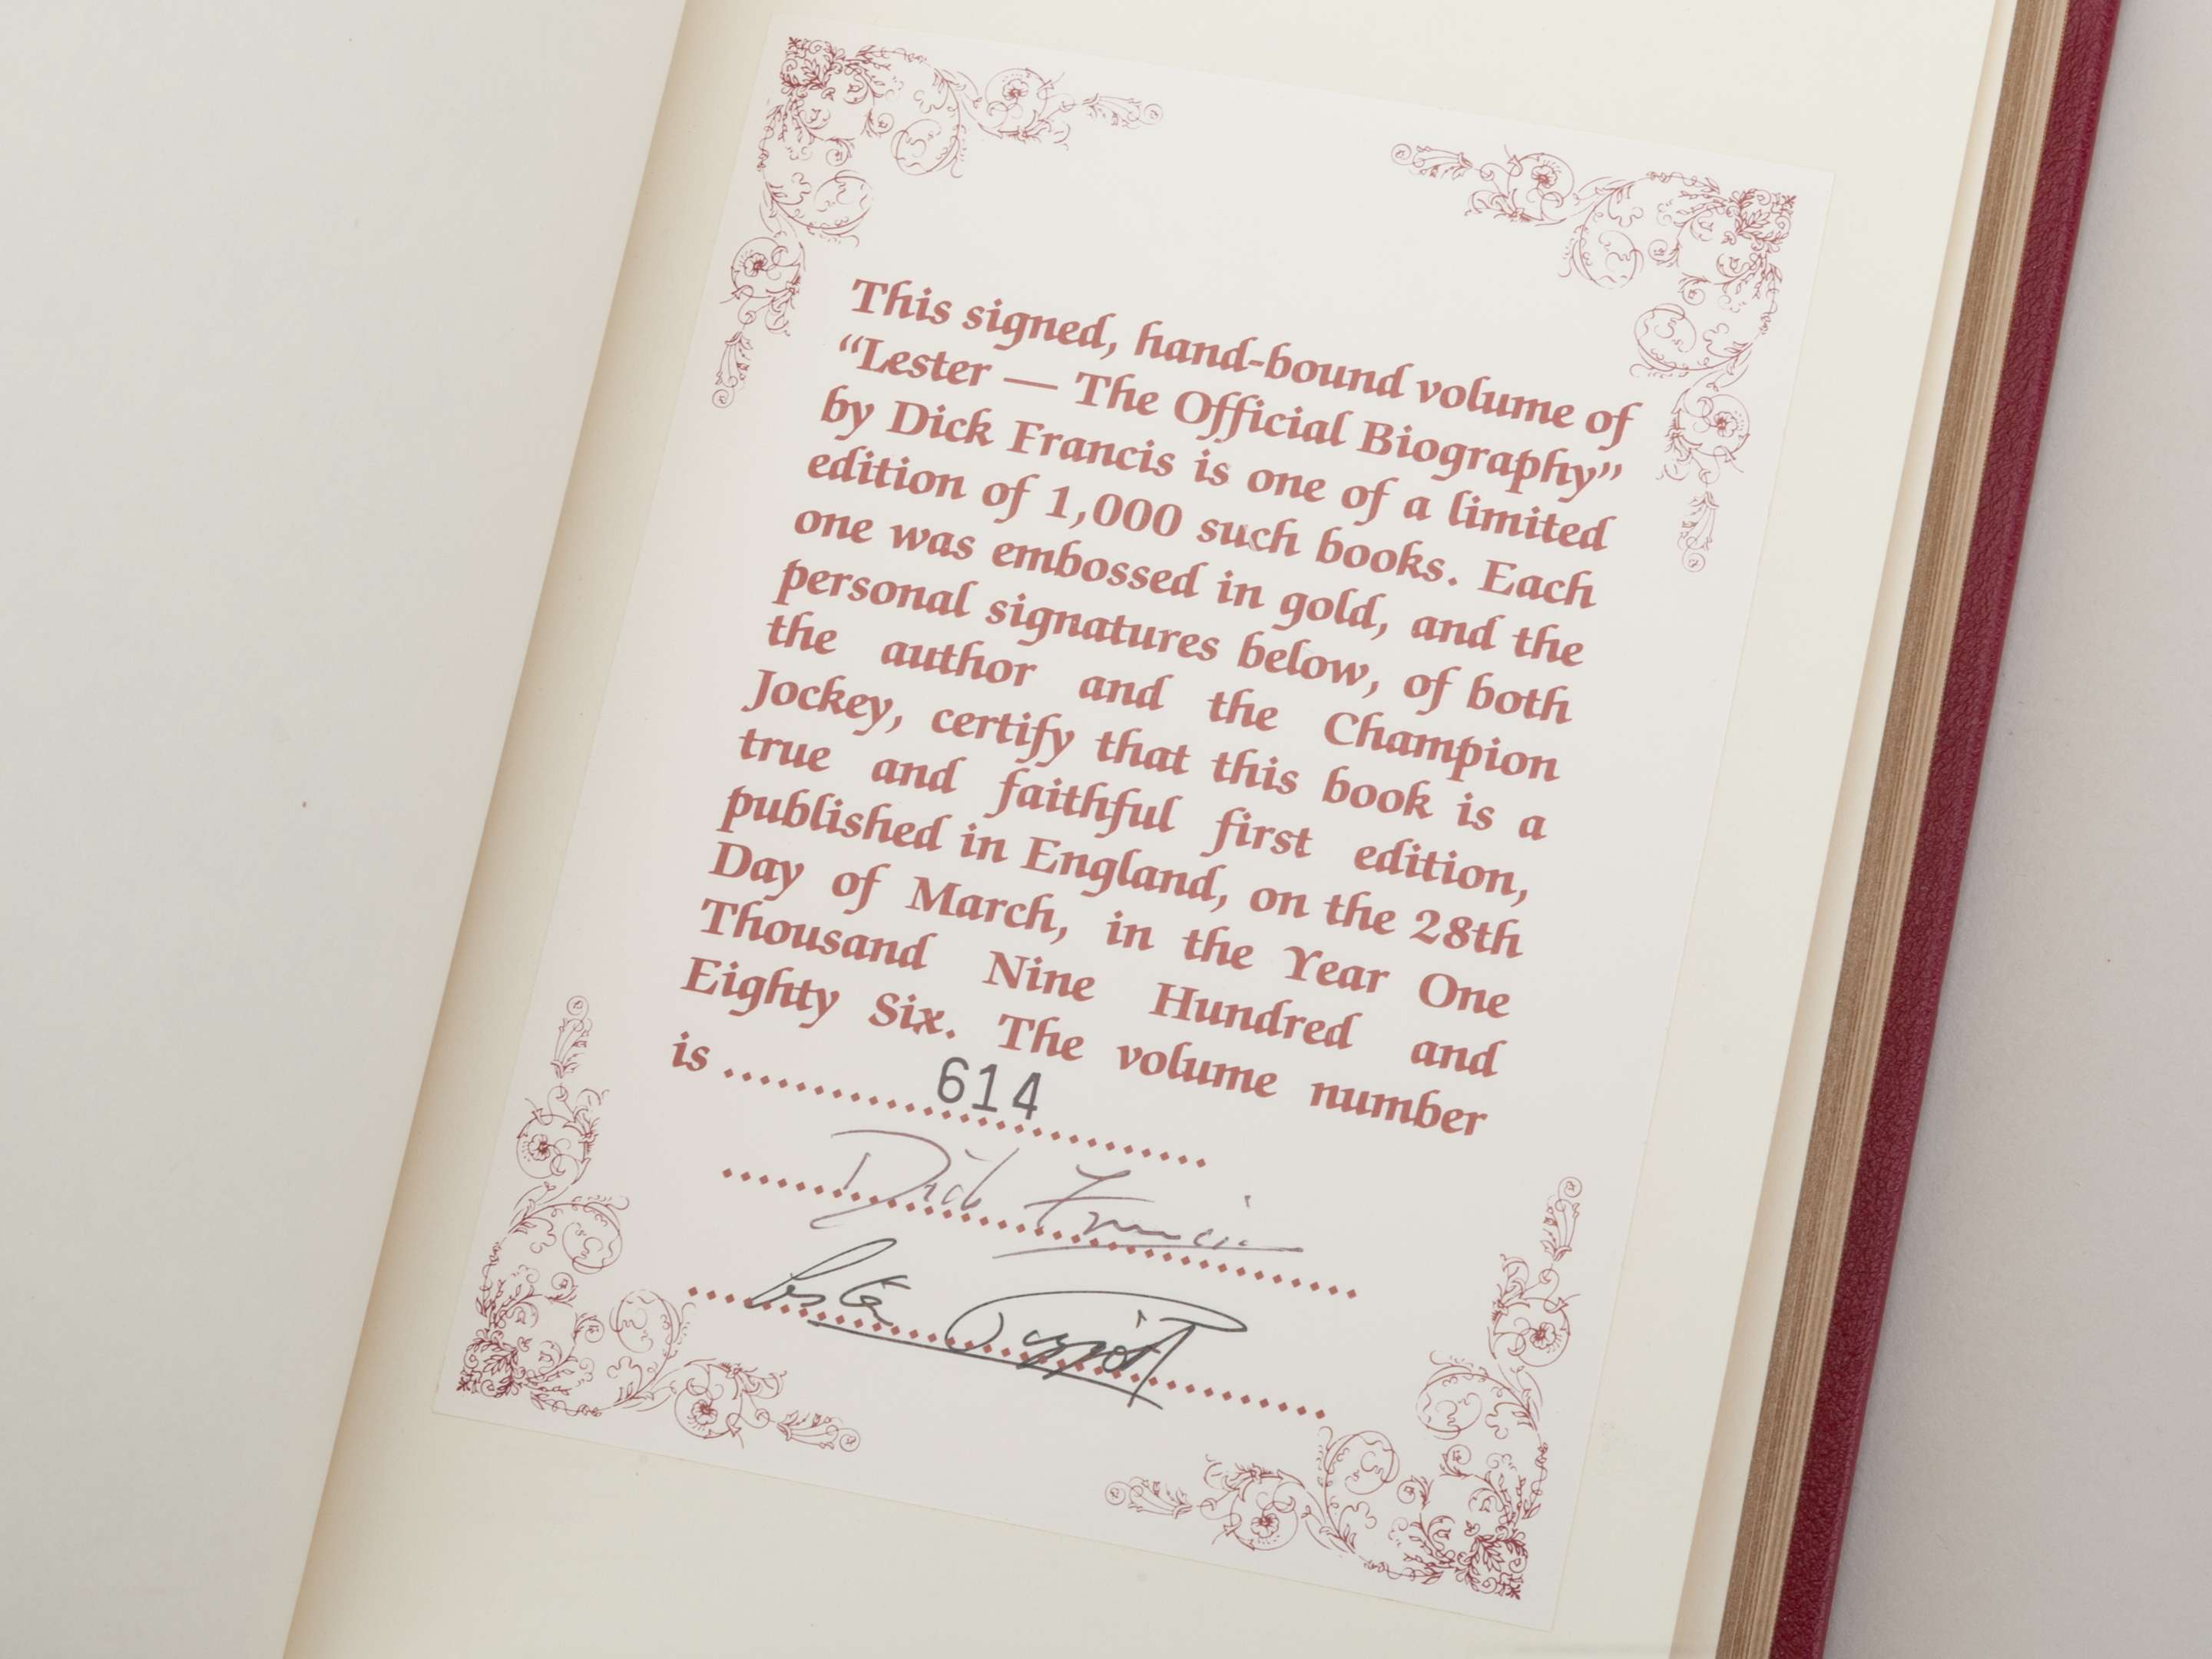 This signed, hand-bound volume of
“Lester — The Official Biography”
by Dick Francis is one of a limited
edition of 1,000 such books. Each
one was embossed in gold, and the
personal signatures below, of both
the author and the Champion
Jockey, certify that this book is a
true and faithful first edition,
published in England, on the 28th
Day of March, in the Year One
Thousand Nine Hundred and
Eighty Six. The volume number
is .......... 614 ..........
Dick Francis
Lester Piggott